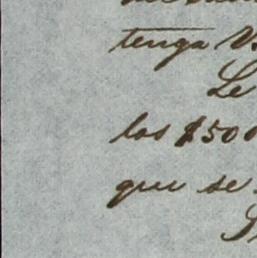 tenga V
Le
los $500
que se